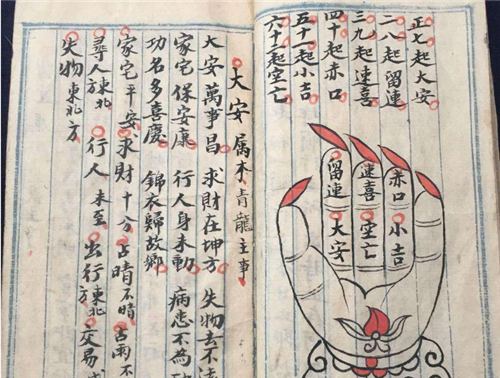 正七起大安
二八起留連
三九起速喜
四十起赤口
五十一起小吉
六十二起空亡
留連
速喜
赤口
大安
空亡
小吉
大安 属木青龍主事
大安萬事昌 求財在坤方 失物去不遠
家宅保安康 行人身未動 病患不為
功名多喜慶 錦衣歸故鄉
家宅平安 求財十分 占晴不晴 占雨不
尋人東北 行人未至 出行東北方 交易
失物東北方